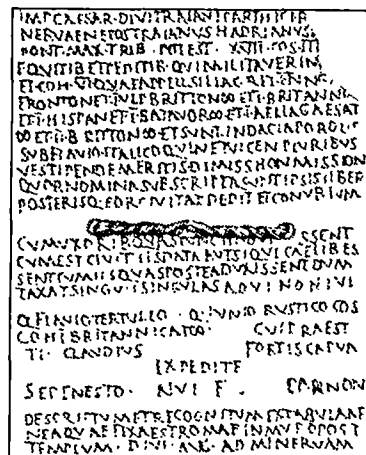 IMP CAESAR·DIVI TRAIANI PARTHIC
NERVAE NEPOS TRAIANVS HADRIANVS
PONT·MAX·TRIB·POTEST· COS·III
EQVITIB ET PEDITIB·QVI MILITAVER IN
ET COH·
FRONTON ET BRITTON ∞ ET I·BRITANNI
ET I·HISPAN ET I·BATAVOR ∞ ET I·AELIA GAESAT
∞ ET II·BRITTON ∞ ET SVNT·IN DACIA POROLIS
SVB FLAVIO ITALICO QVIN ET VICEN PLVRIBVS
VE STIPEND EMERITIS DIMISS HON MISSION
QVOR NOMINA SVBSCRIPTA SVNT IPSIS LIBER
POSTERISQ EOR CIVITAT DEDIT ET CONVBIVM
CVM VXORIBVS QVAS TVNC HABVISSENT
CVM EST CIVIT IIS DATA AVT SIQVI CAELIBES
SENT CVM IIS QVAS POSTEA DVXISSENT DVM
TAXAT SINGVLI SINGVLAS A D VI NON IVL
Q FLAVIO TERTVLLO· Q·IVNIO RVSTICO COS
COH I BRITANNICAE ∞ CVI PRAEST
TI·CLAVDIVS FORTIS CAPVA
EX PEDITE
SEPENESTO· RIVI F· PANNON
DESCRIPTVM ET RECOGNITVM EX TABVLA AE
NEA QVAE FIXA EST ROMAE IN MVRO POST
TEMPLVM·DIVI·AVG·AD MINERVAM